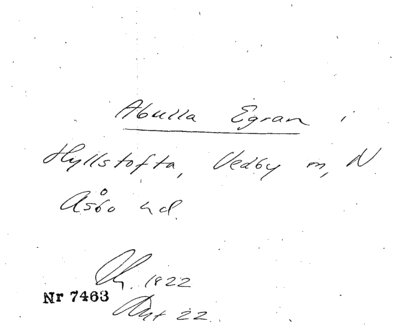 Abulla Egran i
Hyllstofta, Vedby m, N
Åsbo hd.
1822
Nr 7463
22